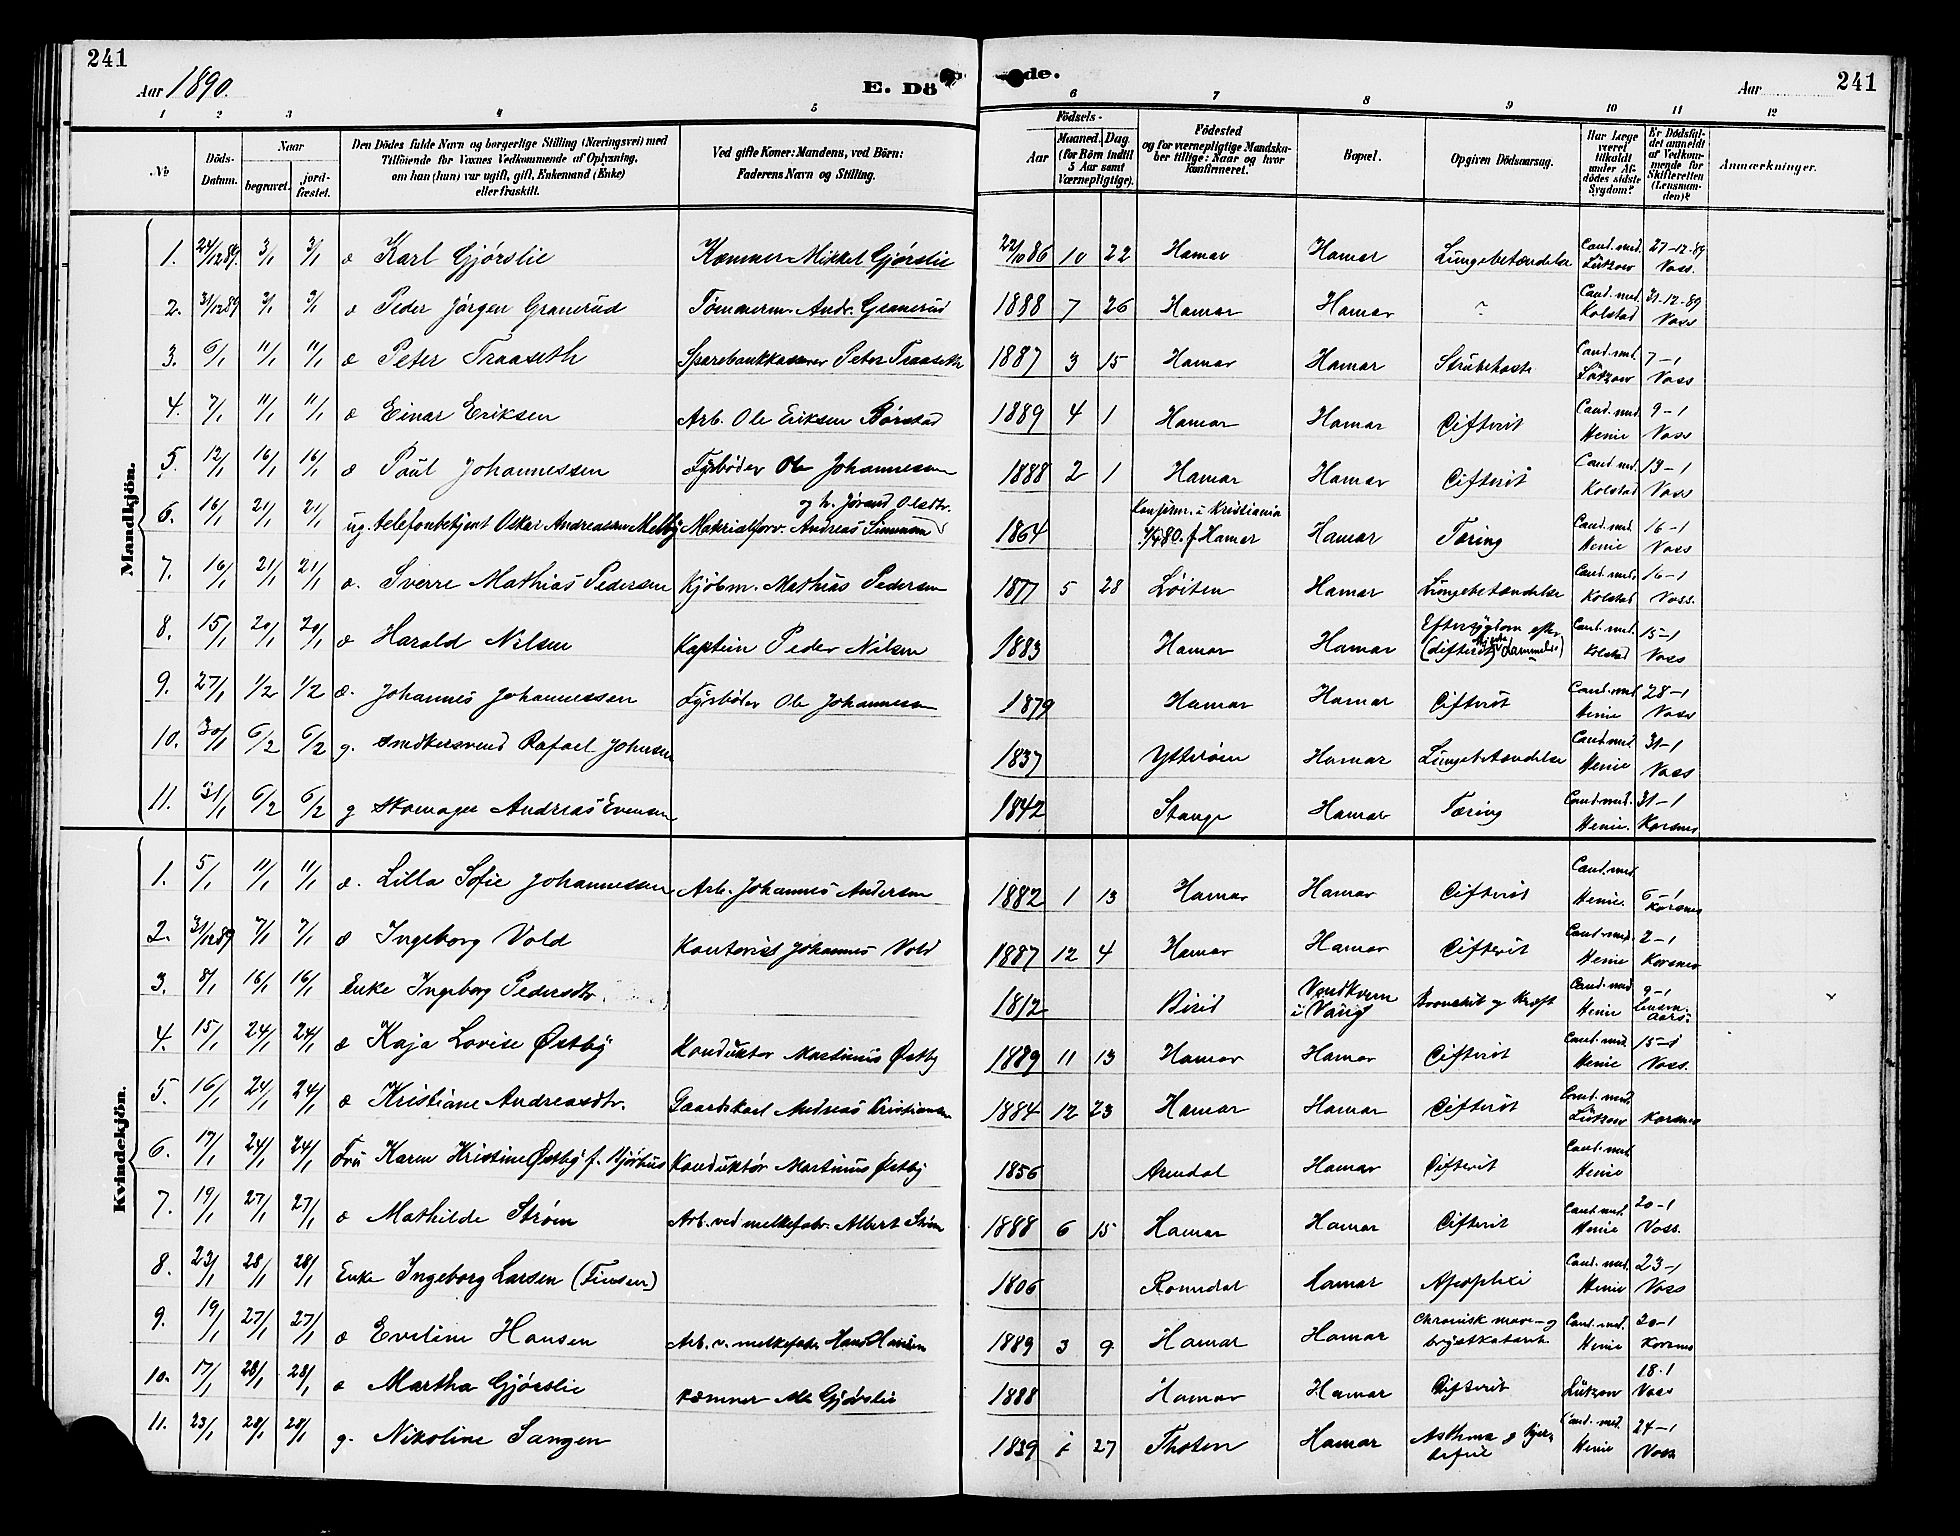 241
Aar 1890.
E. Dö de.
Aar
241
1 2 3 4 5 6 7 8 9 10 11 12
No
Döds-Datum.
Naar
begravet.
jordfæstet.
Den Dödes fulde Navn og borgerlige Stilling (Næringsvei) med Tilföiende for Voxnes Vedkommende af Oplysning, om han (hun) var ugift, gift, Enkemand (Enke) eller fraskilt.
Ved gifte Koner: Mandens, ved Börn: Faderens Navn og Stilling.
Födsels-
Aar
Maaned. Dag.
(for Börn indtil 5 Aar samt Værnepligtige).
Födested og for værnepligtige Mandskaber tillige: Naar og hvor konfirmeret.
Bopæl.
Opgiven Dödsaarsag.
Har Læge været tilkaldt under Afdödes sidste Sygdom?
Er Dödsfaldet anmeldt af Vedkommende for Skifteretten (Lensmanden)?
Anmærkninger.
Mandkjön.
1. 24/12 89. 3/1 3/1 æ Karl Gjørslie Kæmner Mikkel Gjørslie 22/10 86 10 22 Hamar Hamar Lungebetændelse Cand. med. Lützow 27-12-89 Voss.
2. 31/12 89 3/1 3/1 æ Peder Jørgen Granerud Tømmerm. Andr. Granerud 1888 7 26 Hamar Hamar Cand. med. Kolstad 31-12-89 Voss
3. 6/1 11/1 11/1 æ Peter Traaseth Sparebankkasserer Peter Traaseth 1887 3 15 Hamar Hamar Strubehoste Cand. med. Lützow 7-1 Voss
4. 7/1 11/1 11/1 æ Einar Eriksen Arb. Ole Eriksen Børstad 1889 4 1 Hamar Hamar Difterit Cand. med Henie 9-1 Voss
5. 12/1 16/1 16/1 æ Paul Johannessen Fyrbøder Ole Johannessen 1888 2 1 Hamar Hamar Difterit Cand. med. Kolstad 13-1 Voss
6. 16/1 21/1 21/1 ug. telefonbetjent Oskar Andreassen Melby Materialforv. Andreas Simensen og h. Jørand Olsdtr. 1864 Konfirm. i Kristiania 4/4 80. f Hamar Hamar Tæring Cand. med Henie 16-1 Voss
7. 16/1 21/1 21/1 æ. Sverre Mathias Pedersen Kjøbm. Mathias Pedersen 1877 5 28 Løiten Hamar Lungebetændelse Cand. med. Kolstad 16-1 Voss.
8. 15/1 20/1 20/1 æ Harald Nilsen Kaptein Peder Nilsen 1883 Hamar Hamar Eftersygdom efter (difterit) Cand. med. Kolstad 15-1 Voss
9. 27/1 1/2 1/2 æ. Johannes Johannessen Fyrbøder Ole Johannessen 1879 Hamar Hamar Difterit Cand. med Henie 28-1 Voss
10. 30/1 6/2 6/2 g. snedkersvend Rafael Johnsen 1837 Ytterøen Hamar Lungebetændelse Cand. med. Henie 31-1 Voss
11. 31/1 6/2 6/2 g skomager Andreas Evensen 1842 Stange Hamar Tæring Cand. med. Henie. 31-1 Korsmo
Kvindekjön.
1. 5/1 11/1 11/1 æ. Lilla Sofie Johannessen Arb. Johannes Andersen 1882 1 13 Hamar Hamar Difterit Cand. med. Henie. 6-1 Korsmo
2. 31/12 89 7/1 7/1 æ Ingeborg Vold Kontorist Johannes Vold 1887 12 4 Hamar Hamar Difterit Cand. med. Henie 2-1 Korsmo
3. 8/1 16/1 16/1 Enke Ingeborg Pedersdtr. 1812 Birid i Vang Bronchit og Kræft Cand. med Henie 9-1 Lensm.
4. 15/1 24/1 24/1 æ Kaja Lovise Østby Konduktør Martinius Østby 1889 11 13 Hamar Hamar Difterit Cand. med. Henie 15-1 Voss.
5. 16/1 24/1 24/1 æ Kristiane Andreasdtr. Gaardskarl Andreas Kristiansen 1884 12 23 Hamar Hamar Difterit Cand. med. Lützow Korsmo
6. 17/1 24/1 24/1 Fru Karen Kristine Østby f. Konduktør Martinius Østby 1856 Arendal Hamar Difterit Cand. med Henie
7. 19/1 27/1 27/1 æ Mathilde Strøm Arb. ved melkefabr. Albert Strøm 1888 6 15 Hamar Hamar Difterit Cand. med. Henie 20-1 Voss.
8. 23/1 28/1 28/1 Enke Ingeborg Larsen (Finsen) 1806 Romedal Hamar Apoplexi Cand. med. Henie 23-1 Voss
9. 19/1 27/1 27/1 æ Eveline Hansen Arb. v. melkefabr. Hans Hansen 1889 3 9 Hamar Hamar Chronisk mave- og brystkatarrh Cand. med. Henie 20-1 Korsmo
10. 17/1 28/1 28/1 æ Martha Gjørslie kæmner M. Gjørslie 1888 Hamar Hamar Difterit Lützow 18.1 Voss
11. 23/1 28/1 28/1 g. Nikoline Sangen 1839 27 Thoten Hamar Asthma og Hjertefeil Cand. med. Henie 24-1 Voss